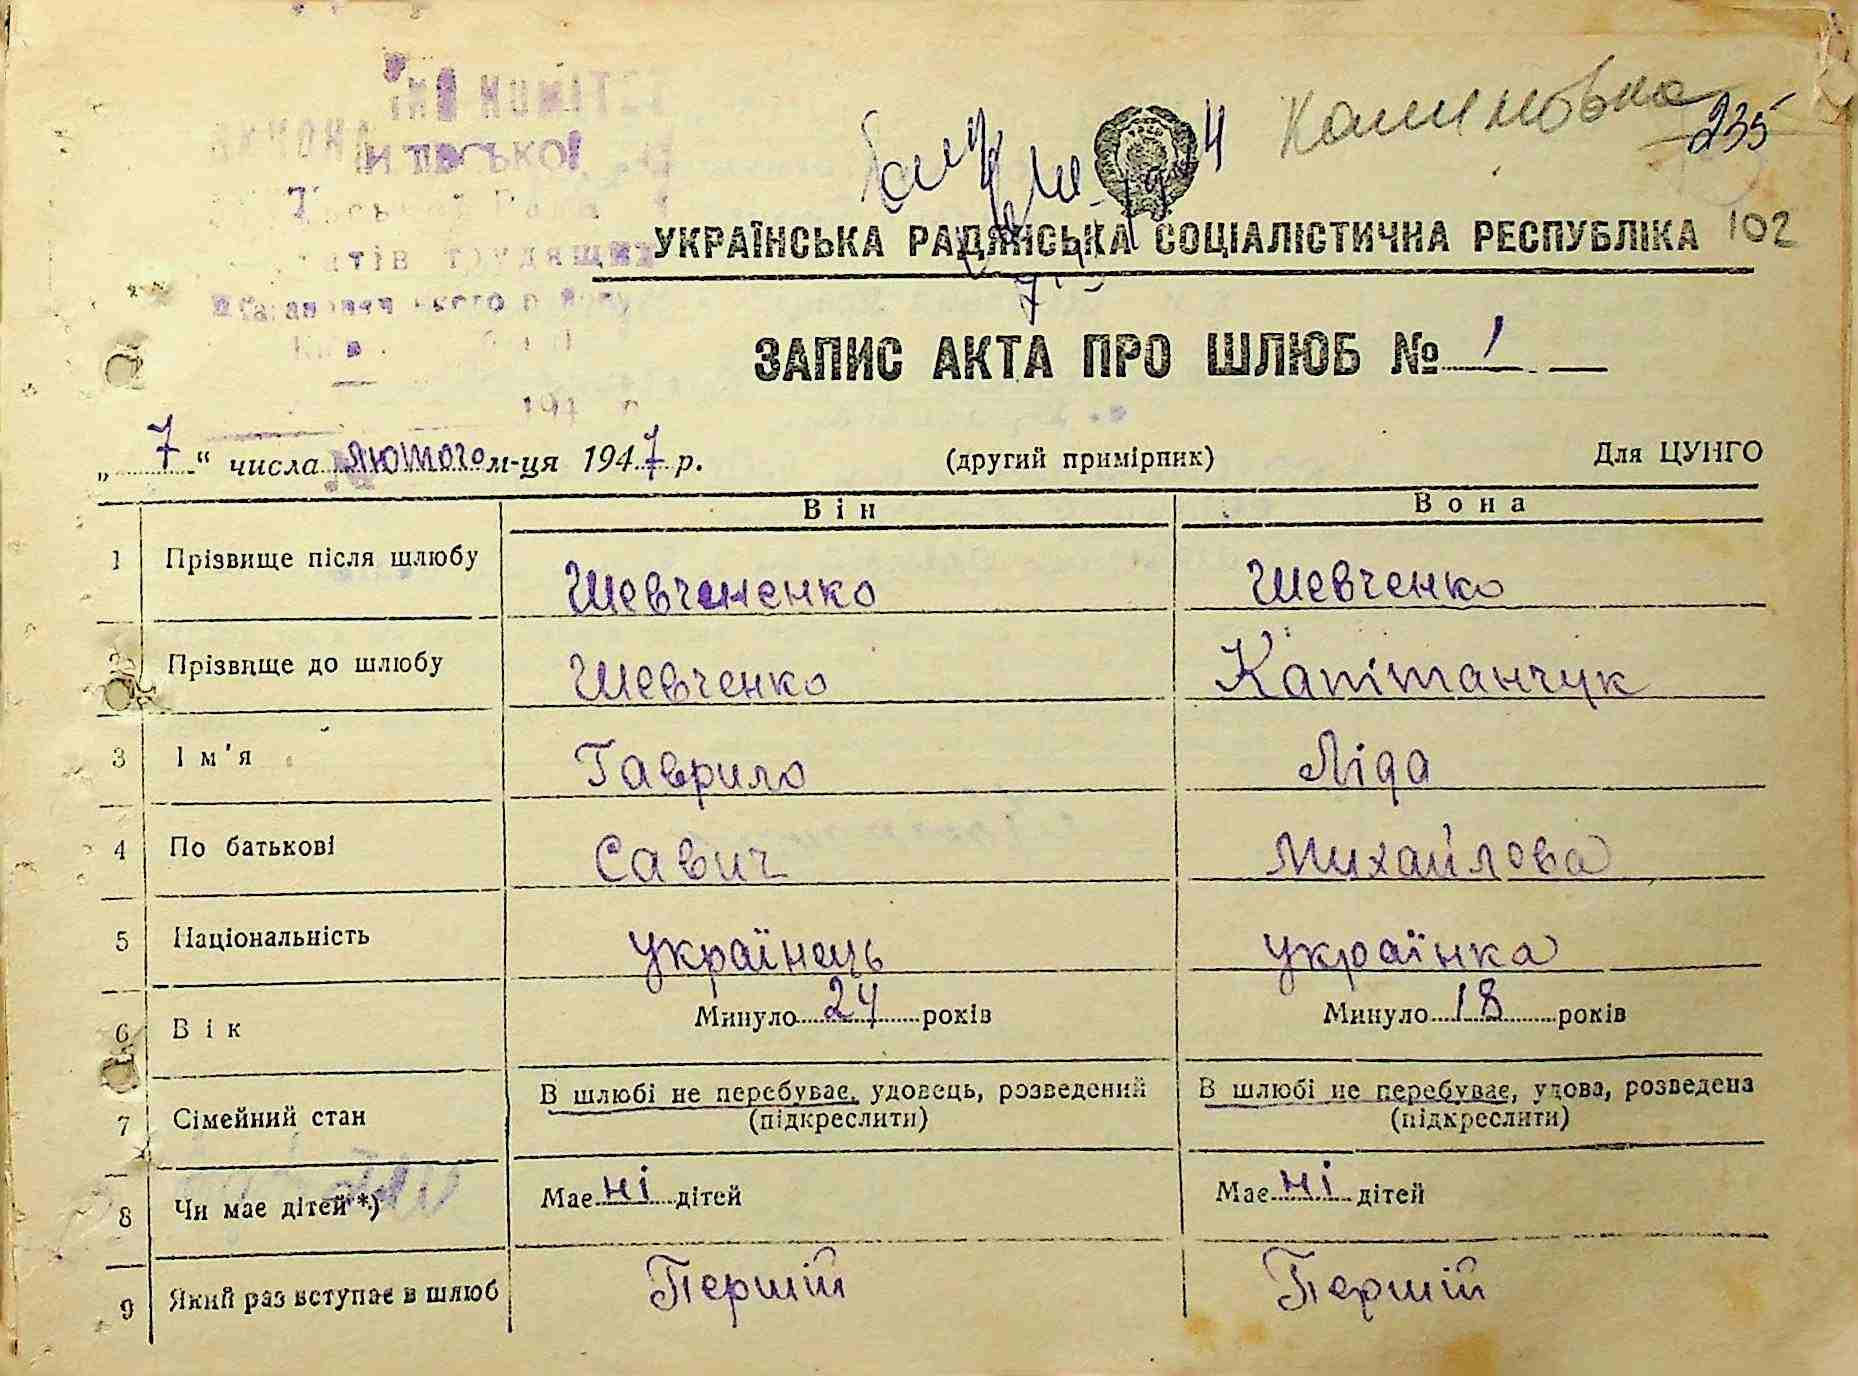 Калиновка
235
УКРАЇНСЬКА РАДЯНСЬКА СОЦІАЛІСТИЧНА РЕСПУБЛІКА 102
ЗАПИС АКТА ПРО ШЛЮБ № 1
„ 7 “ числа лютого м-ця 1947 р. (другий примірник) Для ЦУНГО
Він Вона
1 Прізвище після шлюбу Шевчененко Шевченко
2 Прізвище до шлюбу Шевченко Капітанчук
3 Ім'я Гаврило Ліда
4 По батькові Савич Михайлова
5 Національність українець українка
6 Вік Минуло 24 років Минуло 18 років
7 Сімейний стан В шлюбі не перебуває, удовець, розведений (підкреслити) В шлюбі не перебуває, удова, розведена (підкреслити)
8 Чи має дітей*) Має ні дітей Має ні дітей
9 Який раз вступає в шлюб Першій Першій